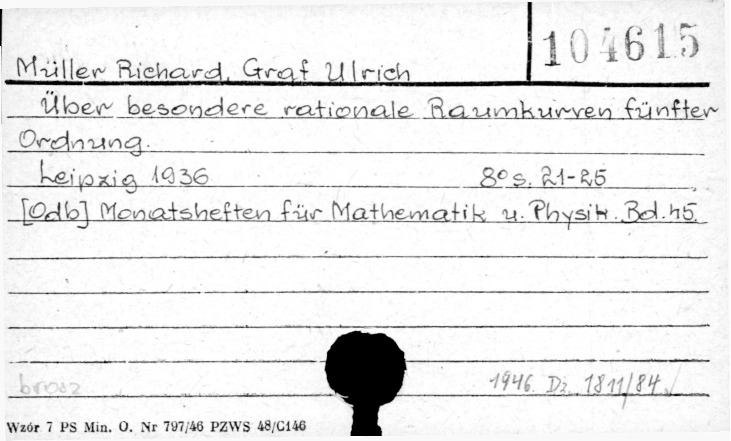 104615
Müller Richard, Graf Ulrich
Über besondere rationale Raumkurven fünfter
Ordnung.
Leipzig 1936 8° s. 21-25
[Odb] Monatsheften für Mathematik u. Physik. Bd. 45.
brosz
1946. Dz. 1811/84
Wzór 7 PS Min. O. Nr 797/46 PZWS 48/C146